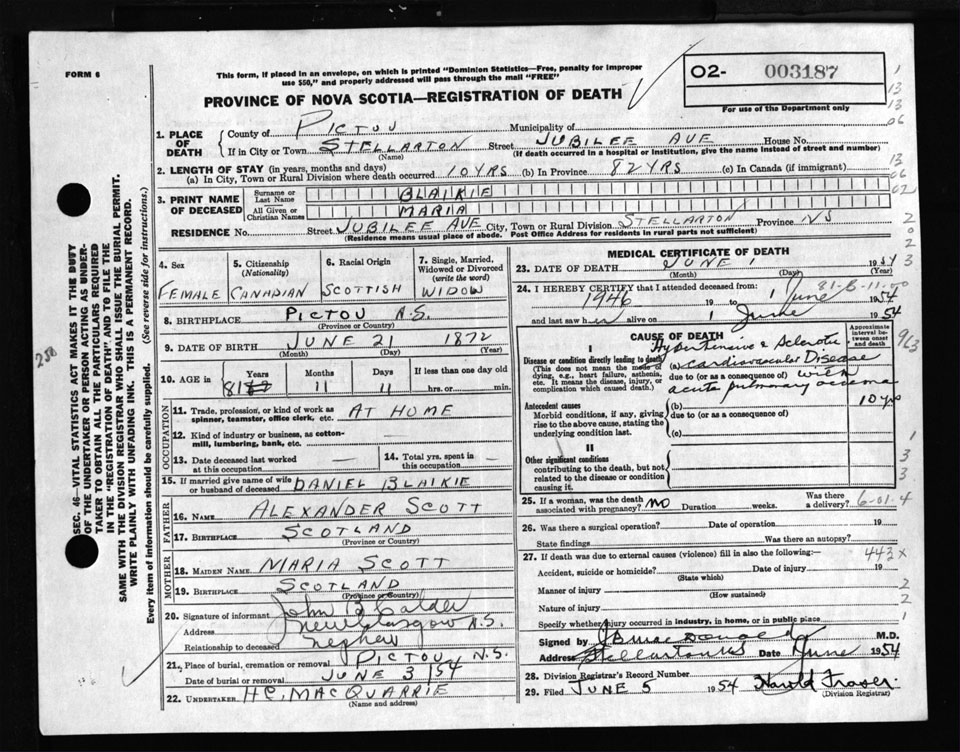 FORM 6
This form, if placed in an envelope, on which is printed "Dominion Statistics—Free, penalty for improper
use $50," and properly addressed will pass through the mail "FREE"
PROVINCE OF NOVA SCOTIA—REGISTRATION OF DEATH
02- 003187
For use of the Department only
1. PLACE OF DEATH
County of PICTOU Municipality of
If in City or Town STELLARTON Street JUBILEE AVE House No.
(Name) (If death occurred in a hospital or institution, give the name instead of street and number)
2. LENGTH OF STAY (in years, months and days)
(a) In City, Town or Rural Division where death occurred 10 YRS (b) In Province 82 YRS (c) In Canada (if immigrant)
3. PRINT NAME OF DECEASED
Surname or Last Name BLAIKIE
All Given or Christian Names MARIA
RESIDENCE No. Street JUBILEE AVE City, Town or Rural Division STELLARTON Province NS
(Residence means usual place of abode. Post Office Address for residents in rural parts not sufficient)
4. Sex FEMALE
5. Citizenship (Nationality) CANADIAN
6. Racial Origin SCOTTISH
7. Single, Married, Widowed or Divorced (write the word) WIDOW
8. BIRTHPLACE PICTOU N.S.
(Province or Country)
9. DATE OF BIRTH JUNE 21 1872
(Month) (Day) (Year)
10. AGE in Years Months Days If less than one day old
81 11 11 hrs. or min.
OCCUPATION
11. Trade, profession, or kind of work as spinner, teamster, office clerk, etc. AT HOME
12. Kind of industry or business, as cotton-mill, lumbering, bank, etc. —
13. Date deceased last worked at this occupation —
14. Total yrs. spent in this occupation —
15. If married give name of wife or husband of deceased DANIEL BLAIKIE
FATHER
16. NAME ALEXANDER SCOTT
17. BIRTHPLACE SCOTLAND
(Province or Country)
MOTHER
18. MAIDEN NAME MARIA SCOTT
19. BIRTHPLACE SCOTLAND
(Province or Country)
20. Signature of informant John B Calder
Address New Glasgow N.S.
Relationship to deceased nephew
21. Place of burial, cremation or removal PICTOU N.S.
Date of burial or removal JUNE 3/54
22. UNDERTAKER H.C. MACQUARRIE
(Name and address)
MEDICAL CERTIFICATE OF DEATH
23. DATE OF DEATH JUNE 1 1954
(Month) (Day) (Year)
24. I HEREBY CERTIFY that I attended deceased from:
1946 19 to 1 June 1954
and last saw her alive on 1 June 1954
CAUSE OF DEATH
Approximate interval between onset and death
I
Disease or condition directly leading to death
(This does not mean the mode of dying, e.g., heart failure, asthenia, etc. It means the disease, injury, or complication which caused death.)
(a) Hypertensive & Sclerotic Cardiovascular Disease
due to (or as a consequence of) with acute pulmonary oedema
10 yrs
Antecedent causes
Morbid conditions, if any, giving rise to the above cause, stating the underlying condition last.
(b)
due to (or as a consequence of)
(c)
II
Other significant conditions
contributing to the death, but not related to the disease or condition causing it.
25. If a woman, was the death associated with pregnancy? NO Duration weeks. Was there a delivery?
6-01-4
26. Was there a surgical operation? Date of operation 19
State findings Was there an autopsy?
27. If death was due to external causes (violence) fill in also the following:—
443X
Accident, suicide or homicide? Date of injury 19
(State which)
Manner of injury
(How sustained)
Nature of injury
Specify whether injury occurred in industry, in home, or in public place
Signed by J B MacDonald M.D.
Address Stellarton NS Date June 1954
28. Division Registrar's Record Number
29. Filed JUNE 5 1954 Harold Fraser
(Division Registrar)
SEC. 46—VITAL STATISTICS ACT MAKES IT THE DUTY
OF THE UNDERTAKER OR PERSON ACTING AS UNDER-
TAKER TO OBTAIN ALL THE PARTICULARS REQUIRED
IN THE "REGISTRATION OF DEATH" AND TO FILE THE
SAME WITH THE DIVISION REGISTRAR WHO SHALL ISSUE THE BURIAL PERMIT.
WRITE PLAINLY WITH UNFADING INK. THIS IS A PERMANENT RECORD.
Every item of information should be carefully supplied. (See reverse side for instructions.)